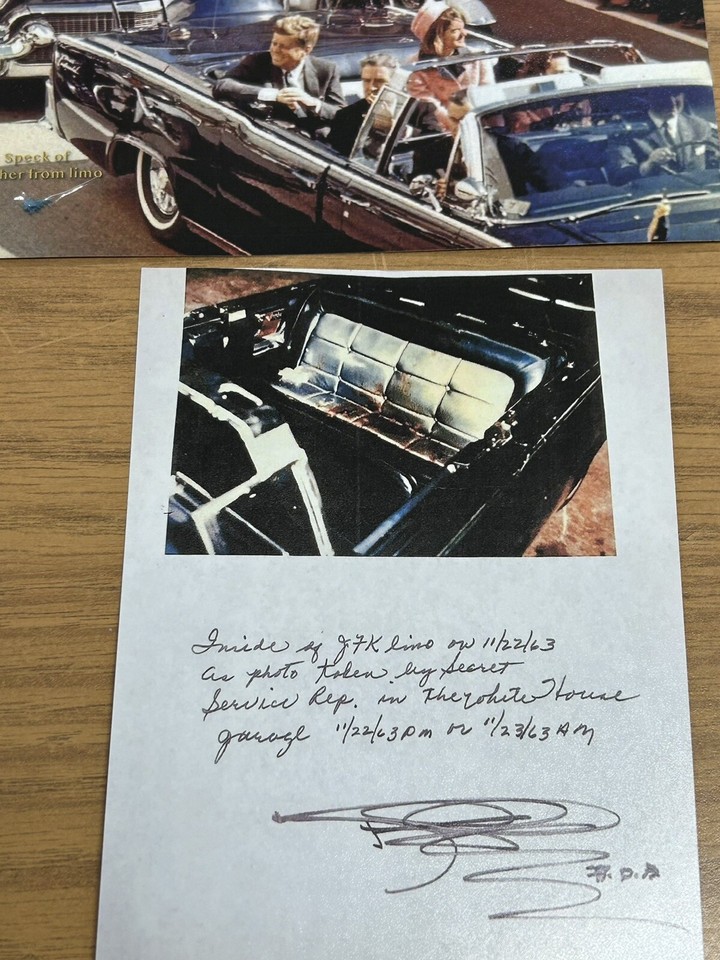 Speck of
her from limo
Inside of JFK limo on 11/22/63
as photo taken by Secret
Service Rep. in the White House
garage 11/22/63 PM or 11/23/63 AM